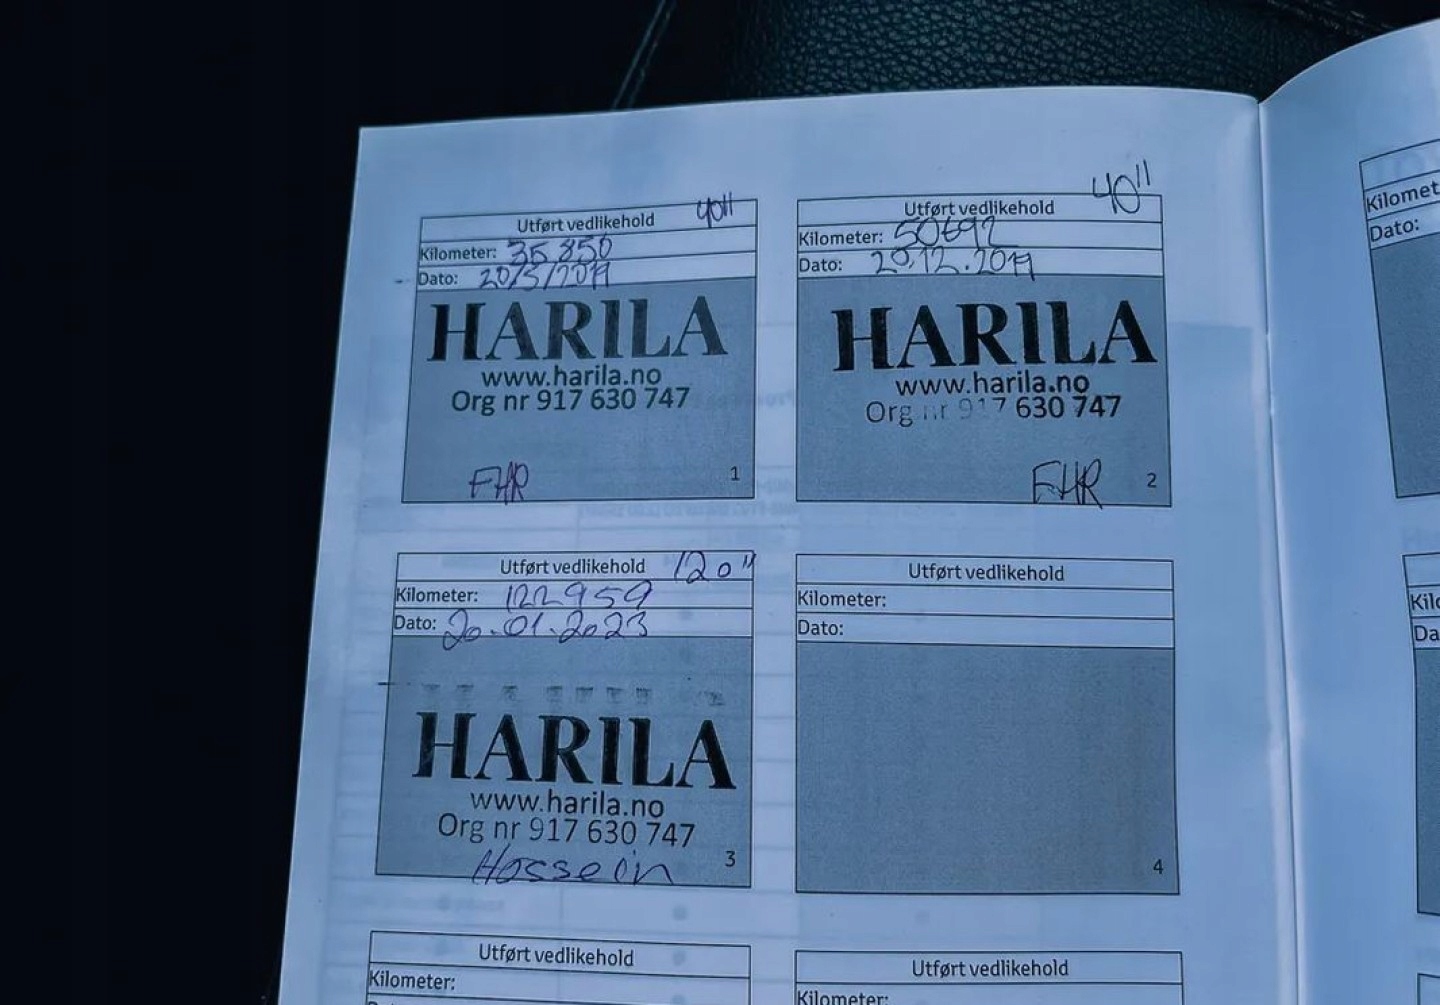 Utført vedlikehold 40"
Kilometer: 35 850
Dato: 20/5/2019
HARILA
www.harila.no
Org nr 917 630 747
FHR
1
Utført vedlikehold 40"
Kilometer: 50692
Dato: 20.12.2019
HARILA
www.harila.no
Org nr 917 630 747
FHR
2
Utført vedlikehold 120"
Kilometer: 122959
Dato: 20.01.2023
HARILA
www.harila.no
Org nr 917 630 747
Hossein
3
Utført vedlikehold
Kilometer:
Dato:
4
Utført vedlikehold
Kilometer:
Utført vedlikehold
Kilometer:
Kilomet
Dato:
Kilo
Da